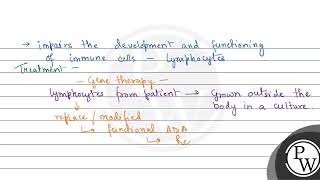 → impairs the development and functioning
of immune cells – lymphocytes
Treatment –
– Gene therapy –
lymphocytes from patient → Grown outside the
body in a culture.
replace / modified
↳ functional ADA
↳ he
PW